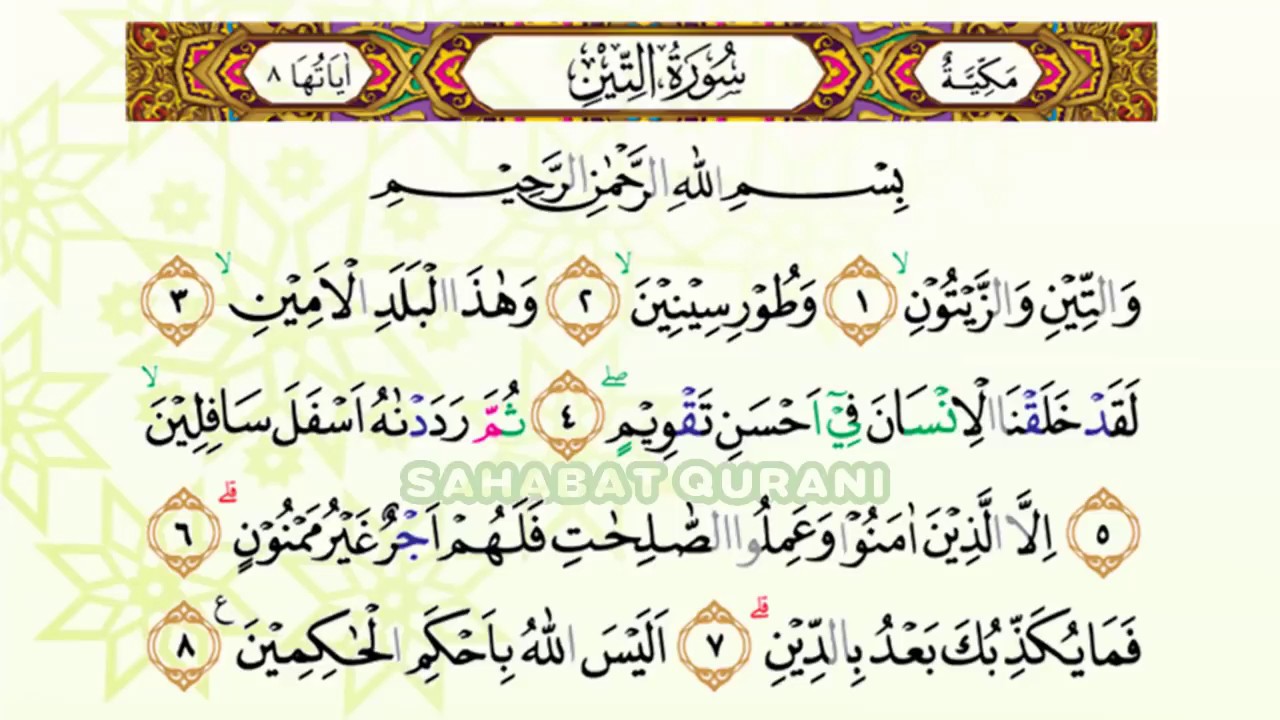 مَكِيَّةٌ سُورَةُ التِّيْنِ اٰيَاتُهَا ٨
بِسْمِ اللّٰهِ الرَّحْمٰنِ الرَّحِيْمِ
وَالتِّيْنِ وَالزَّيْتُوْنِۙ ١ وَطُوْرِ سِيْنِيْنَۙ ٢ وَهٰذَا الْبَلَدِ الْاَمِيْنِۙ ٣
لَقَدْ خَلَقْنَا الْاِنْسَانَ فِيْٓ اَحْسَنِ تَقْوِيْمٍۖ ٤ ثُمَّ رَدَدْنٰهُ اَسْفَلَ سَافِلِيْنَۙ
SAHABAT QURANI
٥ اِلَّا الَّذِيْنَ اٰمَنُوْا وَعَمِلُوا الصّٰلِحٰتِ فَلَهُمْ اَجْرٌ غَيْرُ مَمْنُوْنٍۗ ٦
فَمَا يُكَذِّبُكَ بَعْدُ بِالدِّيْنِۗ ٧ اَلَيْسَ اللّٰهُ بِاَحْكَمِ الْحٰكِمِيْنَ ࣖ ٨